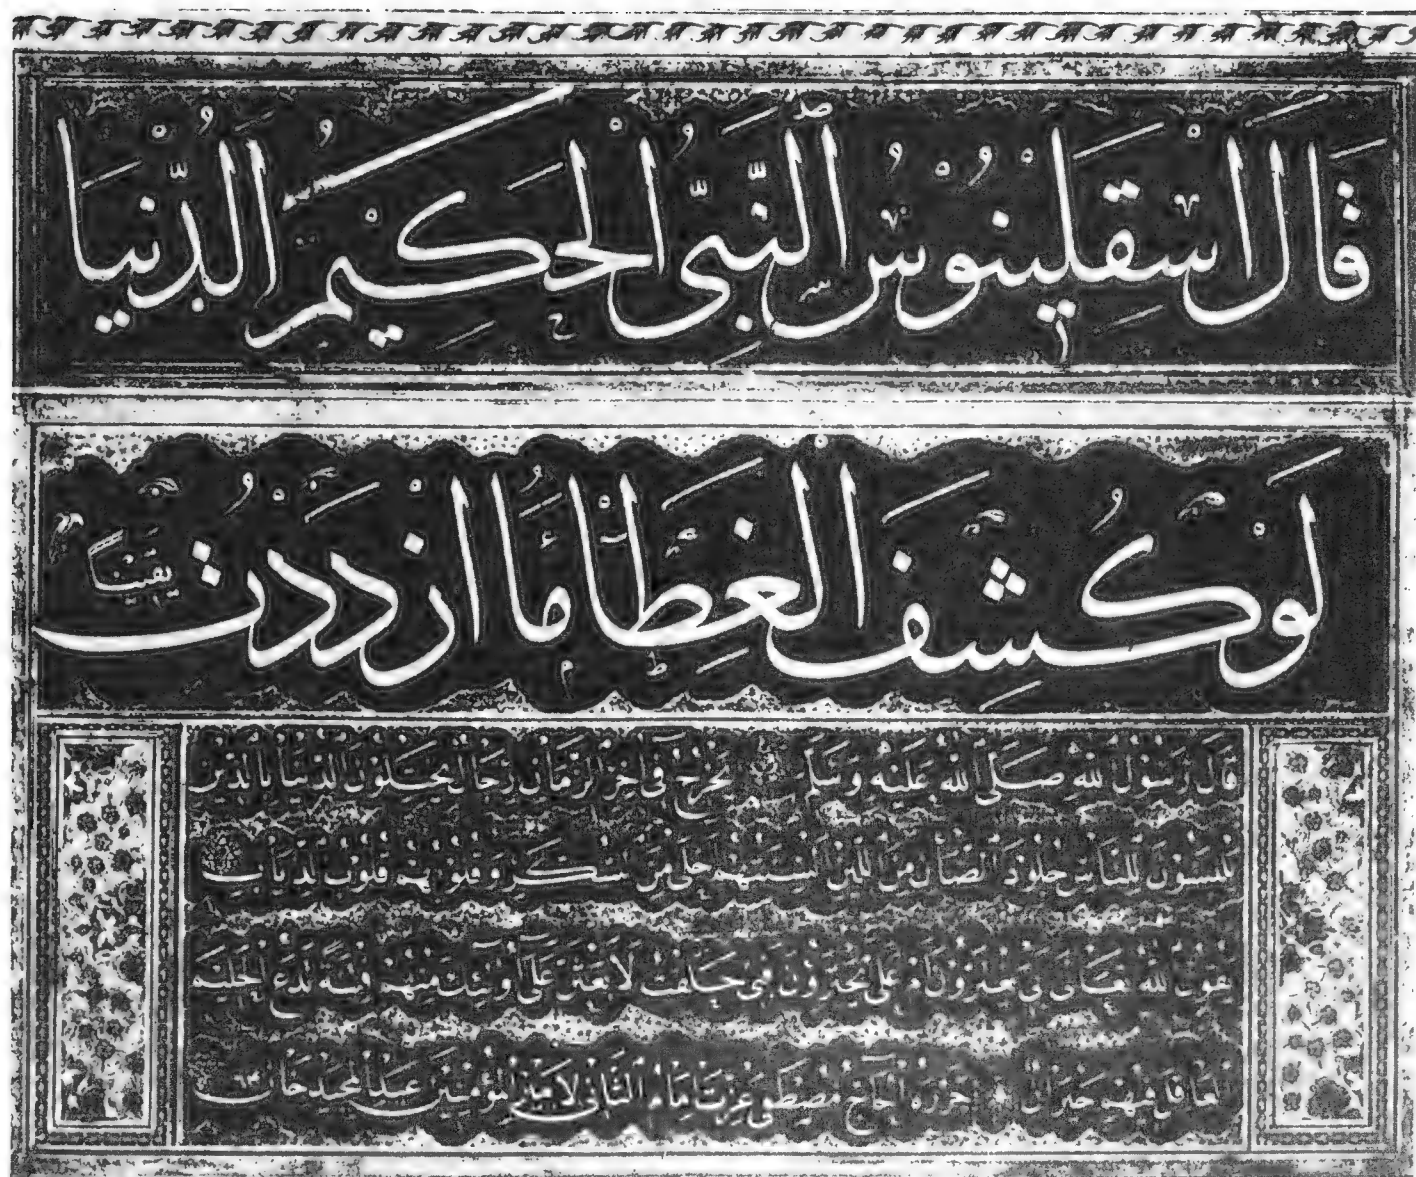 قَالَ اسْقَلِينُوسُ النَّبِيُّ الْحَكِيمُ الدُّنْيَا
لَوْ كُشِفَ الْغِطَا مَا ازْدَدْتُ يَقِينًا
قَالَ رَسُولُ اللهِ صَلَّى اللهُ عَلَيْهِ وَسَلَّمَ يَخْرُجُ فِي آخِرِ الزَّمَانِ رِجَالٌ يَخْتِلُونَ الدُّنْيَا بِالدِّينِ
يَلْبَسُونَ لِلنَّاسِ جُلُودَ الضَّأْنِ مِنَ اللِّينِ أَلْسِنَتُهُمْ أَحْلَى مِنَ السُّكَّرِ وَقُلُوبُهُمْ قُلُوبُ الذِّيَابِ
يَقُولُ اللهُ تَعَالَى يَغْتَرُّونَ أَمْ عَلَيَّ يَجْتَرِؤُنَ فَبِي حَلَفْتُ لَأَبْعَثَنَّ عَلَى أُولَئِكَ مِنْهُمْ فِتْنَةً تَدَعُ الْحَلِيمَ
الْعَاقِلَ فِيهِمْ حَيْرَانَ حَرَّرَهُ الْحَاجُّ مُصْطَفَى عِزَّت إِمَامُ الثَّانِي لِأَمِيرِ الْمُؤْمِنِينَ عَبْدُ الْمَجِيد خَان